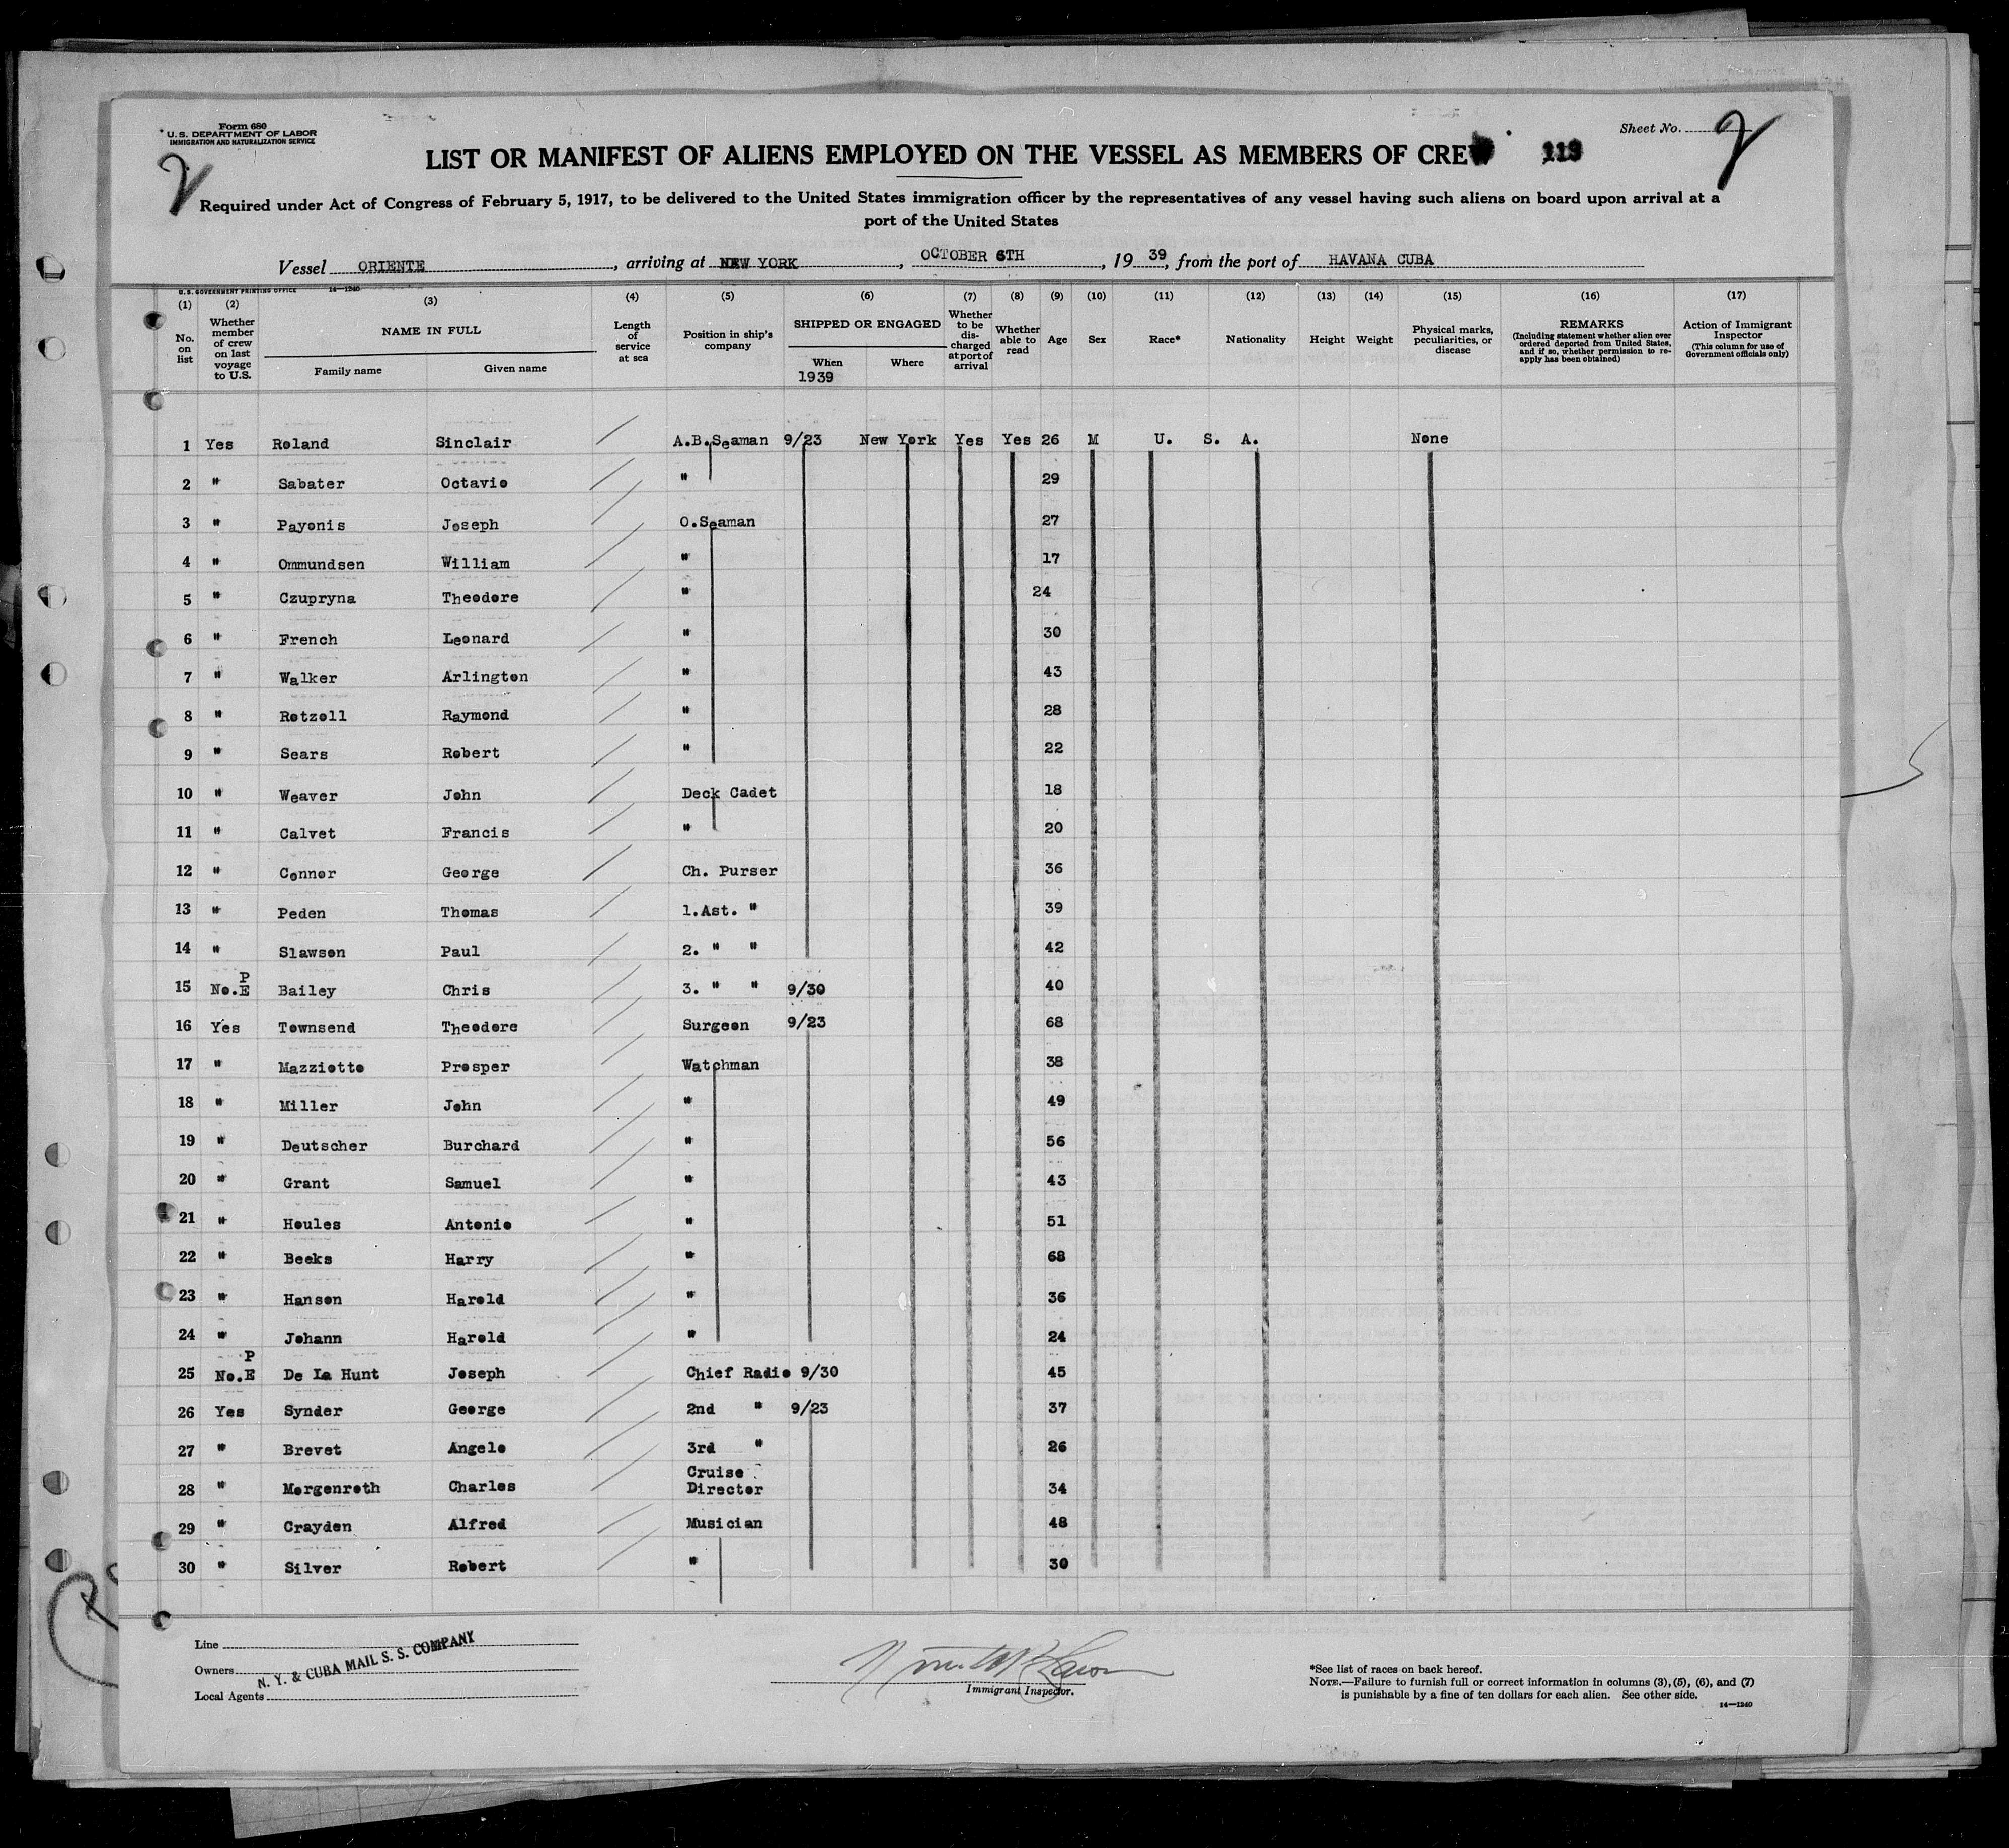 Form 680
U. S. DEPARTMENT OF LABOR
IMMIGRATION AND NATURALIZATION SERVICE
Sheet No. 2
2
LIST OR MANIFEST OF ALIENS EMPLOYED ON THE VESSEL AS MEMBERS OF CREW 113
Required under Act of Congress of February 5, 1917, to be delivered to the United States immigration officer by the representatives of any vessel having such aliens on board upon arrival at a
port of the United States
Vessel ORIENTE, arriving at NEW YORK, OCTOBER 6TH, 19 39, from the port of HAVANA CUBA
U. S. GOVERNMENT PRINTING OFFICE 14—1240
(1) (2) (3) (4) (5) (6) (7) (8) (9) (10) (11) (12) (13) (14) (15) (16) (17)
No. on list
Whether member of crew on last voyage to U.S.
NAME IN FULL
Family name
Given name
Length of service at sea
Position in ship's company
SHIPPED OR ENGAGED
When
1939
Where
Whether to be discharged at port of arrival
Whether able to read
Age
Sex
Race*
Nationality
Height
Weight
Physical marks, peculiarities, or disease
REMARKS
(Including statement whether alien ever ordered deported from United States, and if so, whether permission to reapply has been obtained)
Action of Immigrant Inspector
(This column for use of Government officials only)
1 Yes Roland Sinclair A.B.Seaman 9/23 New York Yes Yes 26 M U. S. A. None
2 " Sabater Octavio " 29
3 " Payonis Joseph O.Seaman 27
4 " Ommundsen William " 17
5 " Czupryna Theodore " 24
6 " French Leonard " 30
7 " Walker Arlington " 43
8 " Retzoll Raymond " 28
9 " Sears Robert " 22
10 " Weaver John Deck Cadet 18
11 " Calvet Francis " 20
12 " Conner George Ch. Purser 36
13 " Peden Thomas 1.Ast. " 39
14 " Slawson Paul 2. " " 42
15 No.P E Bailey Chris 3. " " 9/30 40
16 Yes Townsend Theodore Surgeon 9/23 68
17 " Mazziotto Prosper Watchman 38
18 " Miller John " 49
19 " Deutscher Burchard " 56
20 " Grant Samuel " 43
21 " Houles Antonio " 51
22 " Beeks Harry " 68
23 " Hanson Harold " 36
24 " Johann Harold " 24
25 No.P E De La Hunt Joseph Chief Radio 9/30 45
26 Yes Synder George 2nd " 9/23 37
27 " Brevet Angelo 3rd " 26
28 " Morgenroth Charles Cruise Director 34
29 " Crayden Alfred Musician 48
30 " Silver Robert " 30
Line
Owners
Local Agents
N. Y. & CUBA MAIL S. S. COMPANY
Immigrant Inspector.
*See list of races on back hereof.
NOTE.—Failure to furnish full or correct information in columns (3), (5), (6), and (7)
is punishable by a fine of ten dollars for each alien. See other side.
14—1240